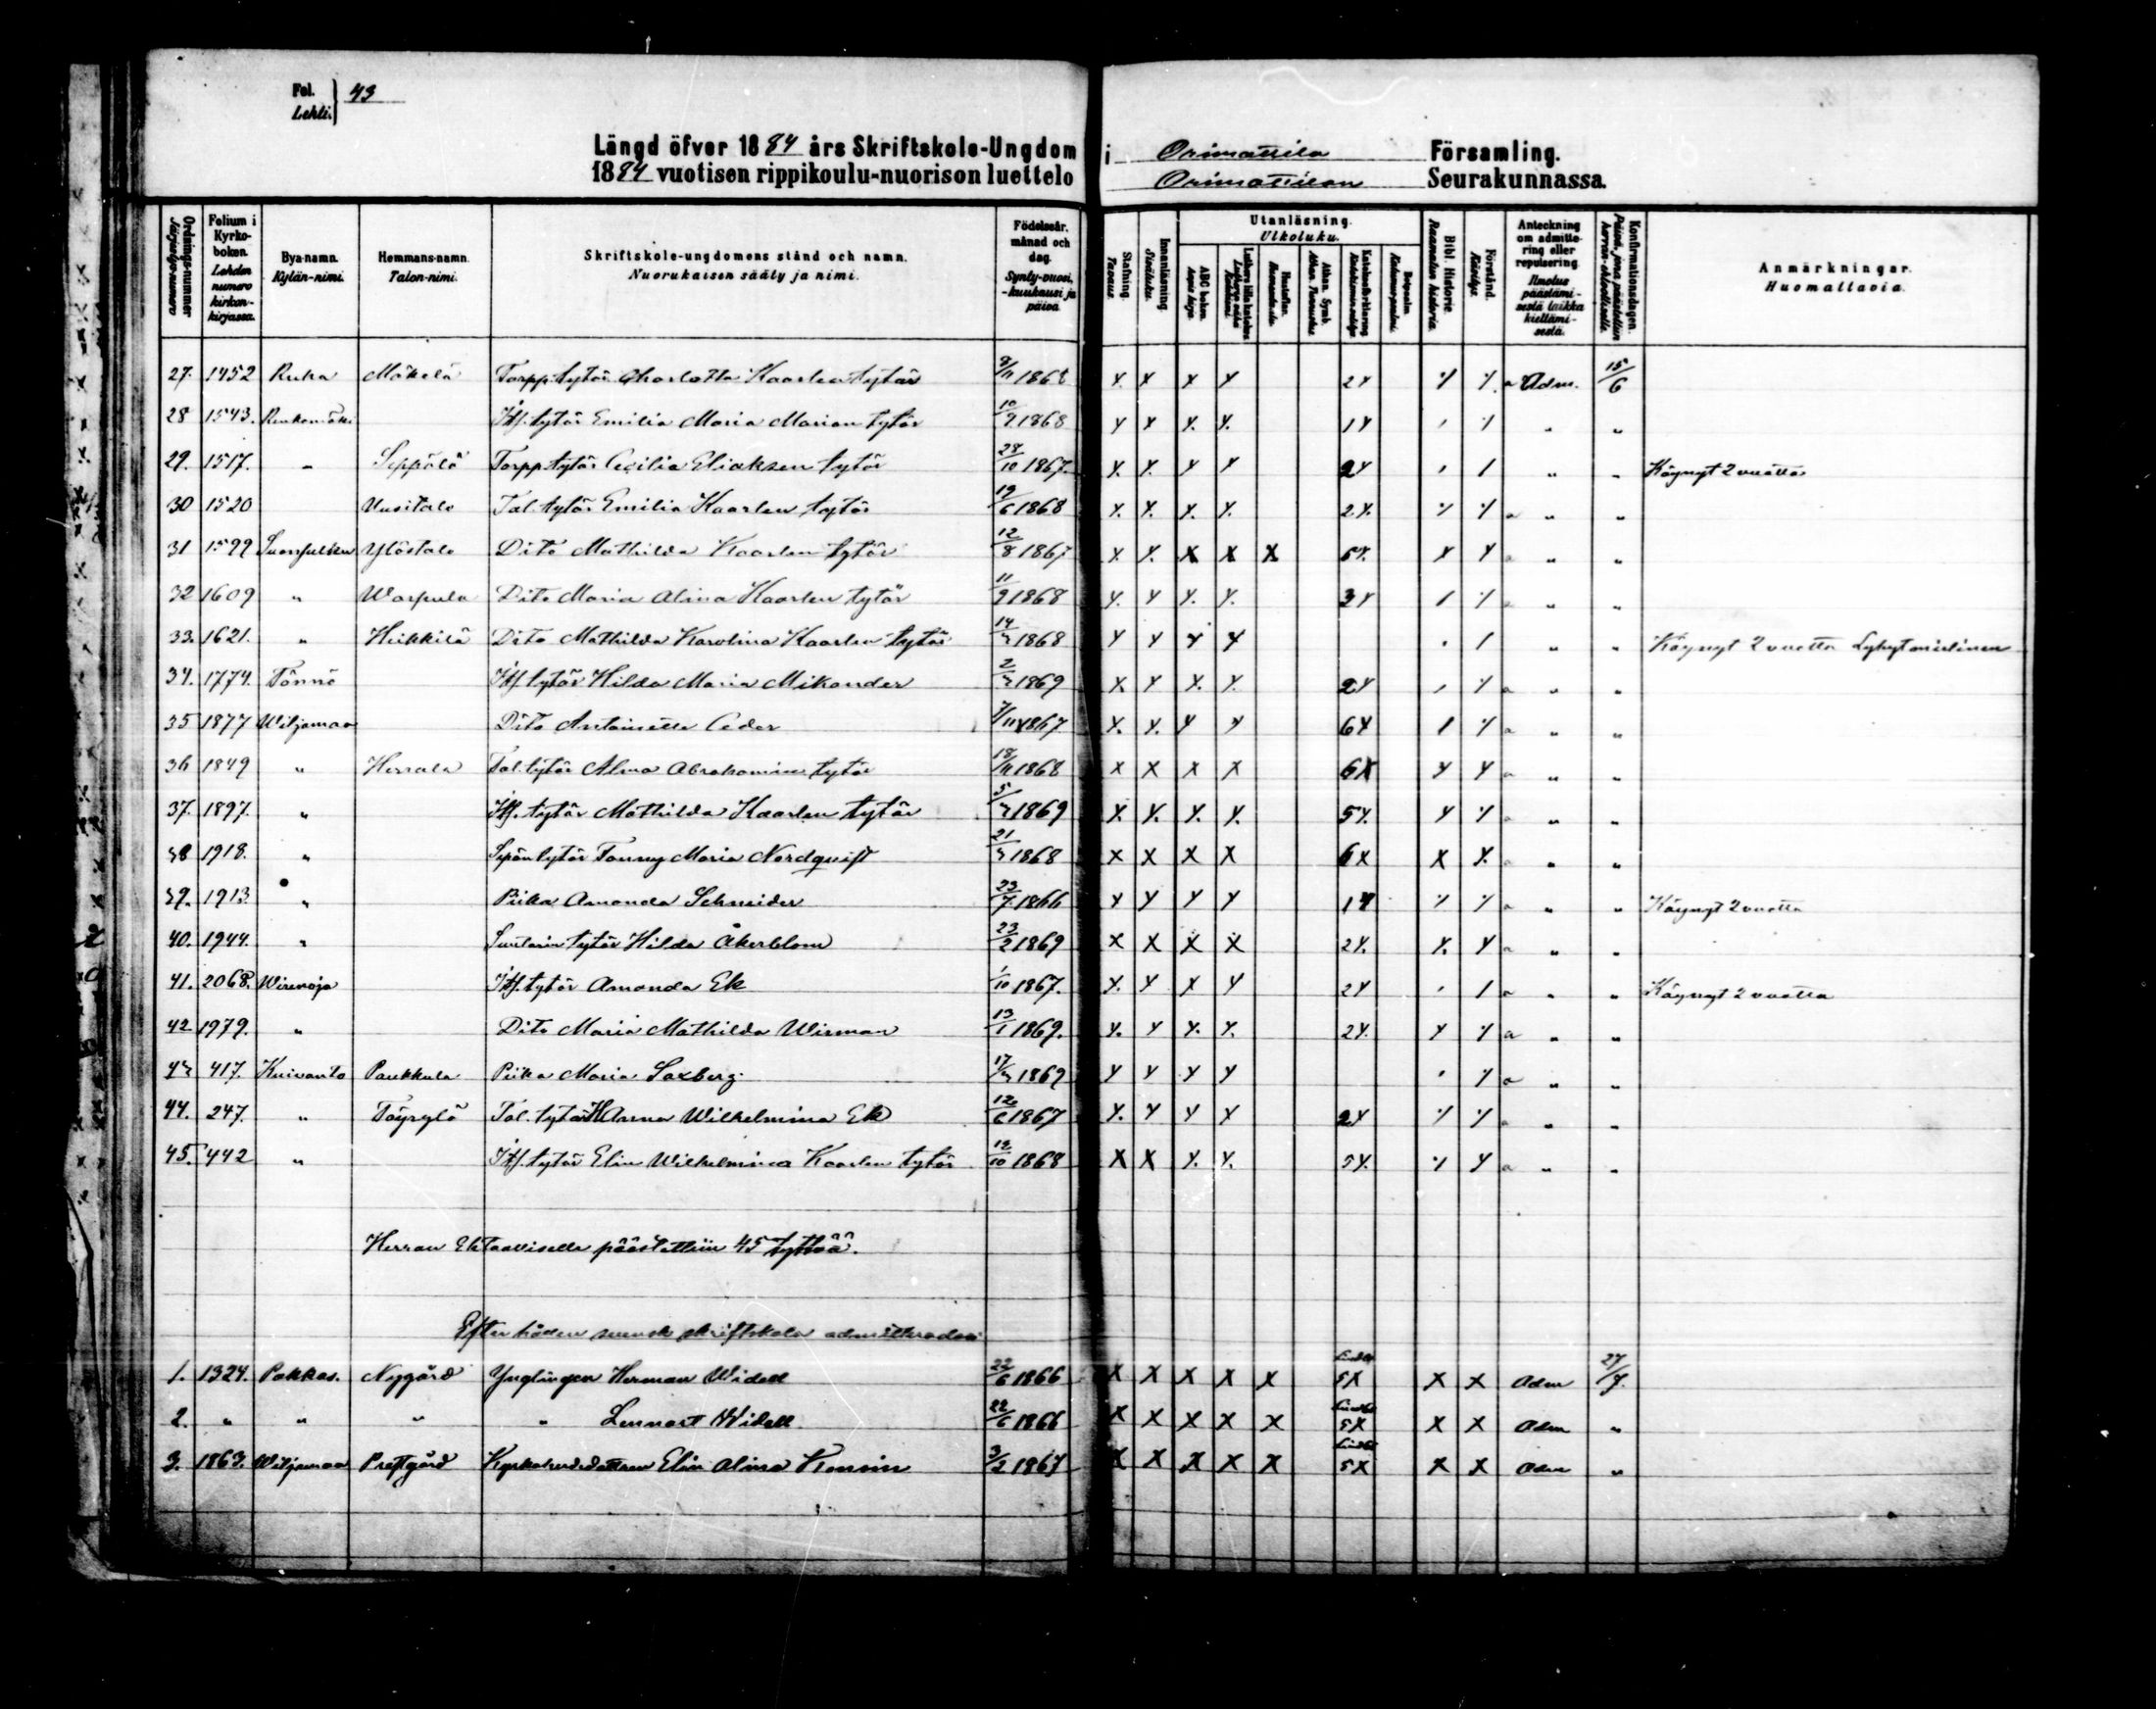 Fol. 43
Lehti.
Längd öfver 1884 års Skriftskole-Ungdom i Orimattila Församling.
1884 vuotisen rippikoulu-nuorison luettelo Orimattilan Seurakunnassa.
Ordnings-nummer Järjestys-numero
Folium i Kyrko-boken. Lehden numero kirkon-kirjassa.
Bya-namn. Kylän-nimi.
Hemmans-namn. Talon-nimi.
Skriftskole-ungdomens stånd och namn. Nuorukaisen sääty ja nimi.
Födelseår, månad och dag. Synty-vuosi, -kuukausi ja päiva
Stafning. Tavaus.
Innanläsning. Sisäluku.
Utanläsning. Ulkoluku.
ABC boken.
Athan. Symb.
Bibl. Historie. Raamatun historia.
Förstånd. Käsitys.
Anteckning om admitte-ring eller repulsering. Ilmotus päästämi-sestä taikka kieltämi-sestä.
Konfirmationsdagen.
Anmärkningar. Huomattavia.
27. 1452 Ruha Mäkelä Torpp. tytär Charlotta Kaarlen tytär 9/11 1868 x x x x 2x a Adm. 15/6
28 1543. Its. tytär Emilia Maria Marian tytär 10/9 1868 x x x. x. 1x " "
29. 1517. " Seppälä Torpp. tytär Cecilia Eliaksen tytär 28/10 1867. x. x. x x 2x " " Käynyt 2 vuotta
30 1520 Uusitalo Tal. tytär Emilia Kaarlen tytär 19/6 1868 x. x. x. x. 2x. a " "
31 1599 Ylöstalo Dito Mathilda Kaarlen tytär 12/8 1867 x x. x x x 5x. x x a " "
32 1609 " Warpula Dito Maria Alina Kaarlen tytär 11/9 1868 x. x x. x. 3x a " "
33. 1621. " Heikkilä Dito Mathilda Karolina Kaarlen tytär 14/3 1868 x x x x " " Käynyt 2 vuotta Lyhytmielinen
34. 1774. Tönnö Its. tytär Hilda Maria Mikander 2/3 1869 x x x. x. 2x a " "
35 1877 Wiljamaa Dito Antoinette Ceder 7/11 1867 x. x. x x 6x a " "
36 1849 " Herrala Tal. tytär Alma Abrahamin tytär 18/11 1868 x x x x 6x x x a " "
37. 1897. " Its. tytär Mathilda Kaarlen tytär 5/3 1869 x. x. x. x. 5x. a " "
38 1918. " Sepän tytär Fanny Maria Nordqvist 21/3 1868 x x x x 6x x x. a " "
39. 1913 " Piika Amanda Schneider 23/7 1866 x x x x 1x a " " Käynyt 2 vuotta
40. 1944. " Suntarin tytär Hilda Åkerblom 23/2 1869 x x x x 2x. x. x a " "
41. 2068. Wirenoja Its. tytär Amanda Ek 1/10 1867. x. x x x 2x a " " Käynyt 2 vuotta
42 1979. " Dito Maria Mathilda Wirman 13/1 1869. x. x x. x. 2x. a " "
43 417. Kuivanto Paukkula Piika Maria Saxberg 17/3 1869 x x x x a " "
44. 247. " Töyrylä Tal. tytär Hanna Wilhelmina Ek 12/6 1867 x. x x x 2x a " "
45. 442 " Its. tytär Elin Wilhelmina Kaarlen tytär 19/10 1868 x x x. x. 5x. a " "
Herran Ehtoolliselle päästettiin 45 tyttöä.
Efter hållen svensk skriftskola admitterades
1. 1324. Pakkas. Nygård Ynglingen Herman Widell 22/6 1866 x x x x x 5x x x Adm 27/7.
2. " " " " Lennart Widell 22/6 1866 x x x x x 5x x x Adm "
3. 1863. Wiljamaa Prestgård Kyrkoherdedottren Elin Alina 3/2 1867 x x x x x 5x x x Adm "